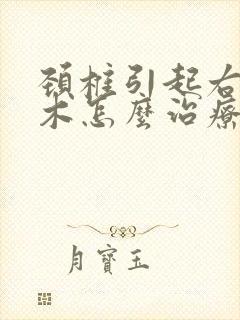 頚椎引起右
木怎麼治療
月寶玉